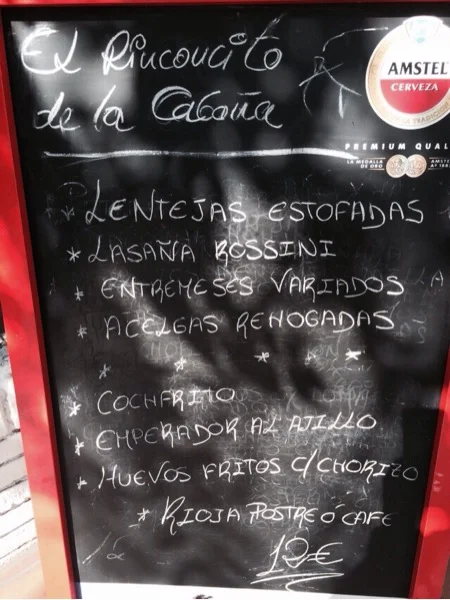 El Rinconcito
de la Cabaña
AMSTEL
CERVEZA
PREMIUM QUAL
LA MEDALLA
DE ORO
* LENTEJAS ESTOFADAS
* LASAÑA ROSSINI
* ENTREMESES VARIADOS
* ACELGAS REHOGADAS
* * * * *
* COCHFRITO
* EMPERADOR AL AJILLO
* HUEVOS FRITOS C/CHORIZO
* RIOJA POSTRE Ó CAFE
12€